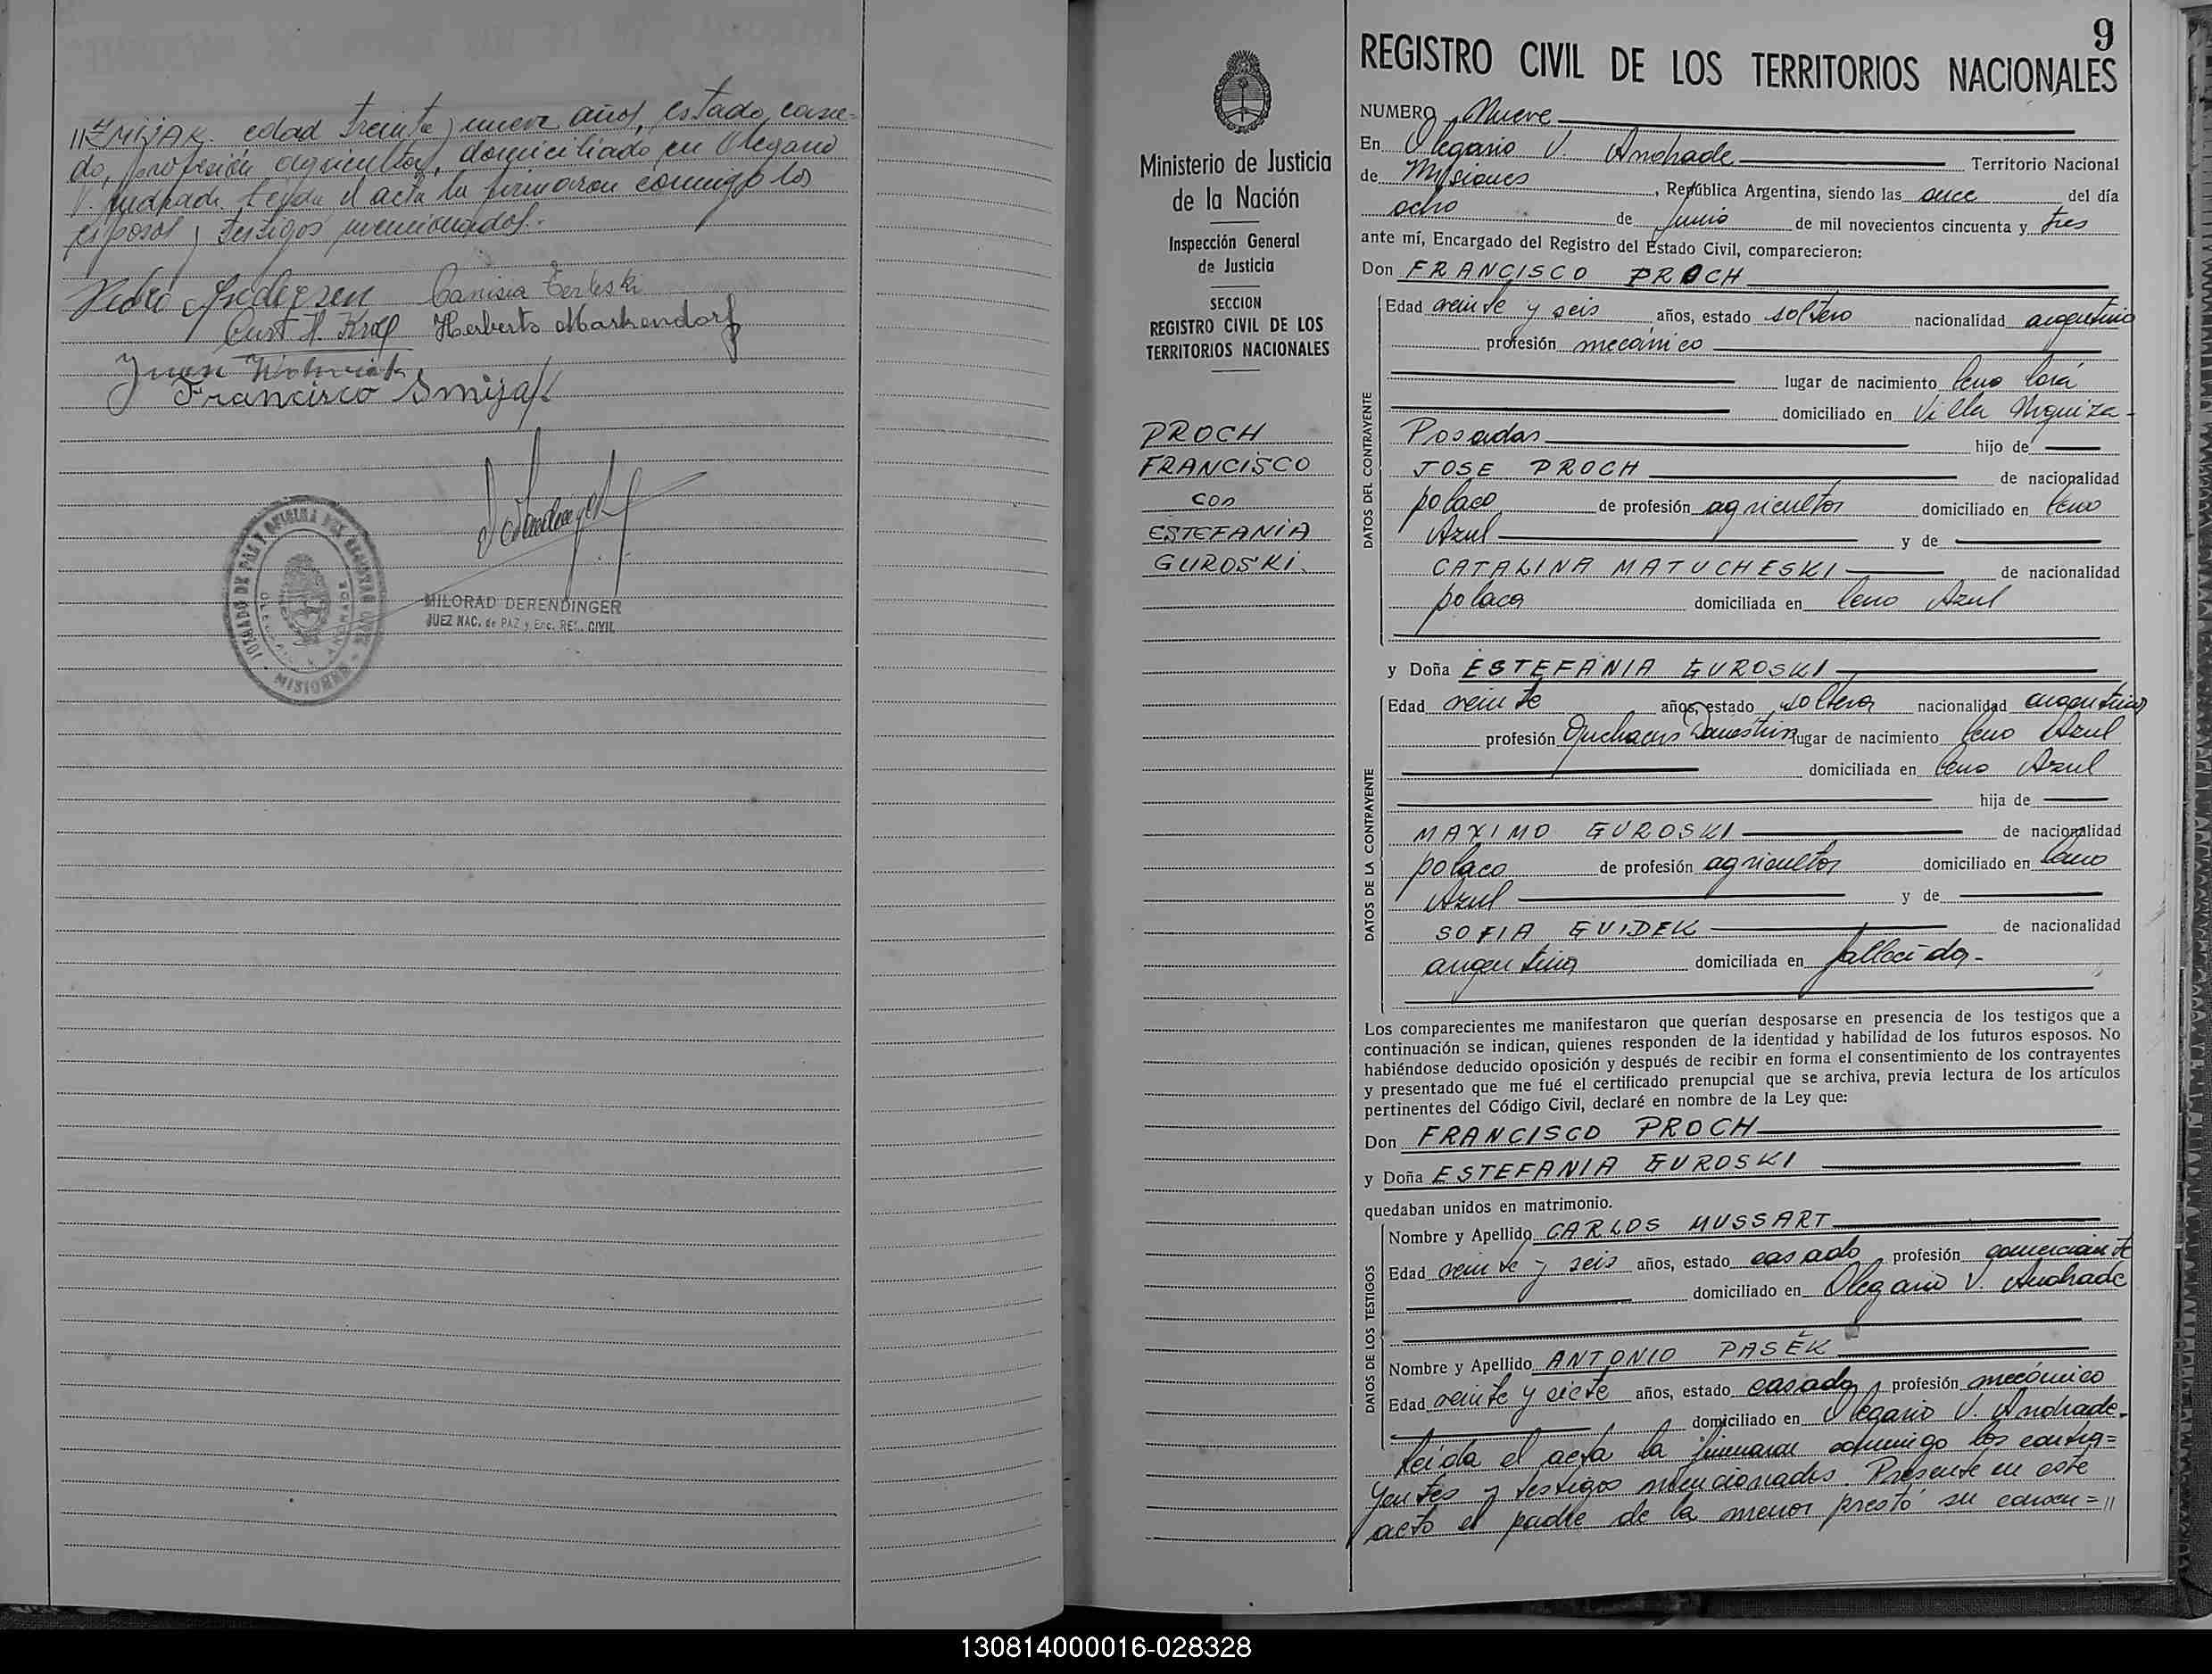 MIJAK. edad treinta y nueve años, estado casa-
do, profesión agricultor, domiciliado en Olegario
V. Andrade. Leida el acta la firmaron conmigo los
esposos y testigos mencionados.-
Pedro Canisia Terleski
Curt H. Krol Herberto Markendorf
Juan
Francisco Smijak
JUZGADO DE PAZ Y OFICINA DEL REGISTRO CIVIL
MISIONES
MILORAD DERENDINGER
JUEZ NAC. de PAZ y Enc. REG. CIVIL
Ministerio de Justicia
de la Nación
Inspección General
de Justicia
SECCION
REGISTRO CIVIL DE LOS
TERRITORIOS NACIONALES
PROCH
FRANCISCO
con
ESTEFANIA
GUROSKI.
9
REGISTRO CIVIL DE LOS TERRITORIOS NACIONALES
NUMERO Nueve
En Olegario V. Andrade Territorio Nacional
de Misiones, República Argentina, siendo las once del día
ocho de Junio de mil novecientos cincuenta y tres
ante mí, Encargado del Registro del Estado Civil, comparecieron:
Don FRANCISCO PROCH
DATOS DEL CONTRAYENTE
Edad veinte y seis años, estado soltero nacionalidad argentino
profesión mecánico
lugar de nacimiento Cerro Corá
domiciliado en Villa Urquiza-
Posadas hijo de
JOSE PROCH de nacionalidad
polaco de profesión agricultor domiciliado en Cerro
Azul y de
CATALINA MATUCHESKI de nacionalidad
polaca domiciliada en Cerro Azul
y Doña ESTEFANIA GUROSKI
DATOS DE LA CONTRAYENTE
Edad veinte años, estado soltera nacionalidad argentina
profesión Quehaceres Domésticos lugar de nacimiento Cerro Azul
domiciliada en Cerro Azul
hija de
MAXIMO GUROSKI de nacionalidad
polaco de profesión agricultor domiciliado en Cerro
Azul y de
SOFIA GUIDEK de nacionalidad
argentina domiciliada en fallecida-
Los comparecientes me manifestaron que querían desposarse en presencia de los testigos que a
continuación se indican, quienes responden de la identidad y habilidad de los futuros esposos. No
habiéndose deducido oposición y después de recibir en forma el consentimiento de los contrayentes
y presentado que me fué el certificado prenupcial que se archiva, previa lectura de los artículos
pertinentes del Código Civil, declaré en nombre de la Ley que:
Don FRANCISCO PROCH
y Doña ESTEFANIA GUROSKI
quedaban unidos en matrimonio.
DATOS DE LOS TESTIGOS
Nombre y Apellido CARLOS MUSSART
Edad veinte y seis años, estado casado profesión comerciante
domiciliado en Olegario V. Andrade
Nombre y Apellido ANTONIO PASEK
Edad veinte y siete años, estado casado, profesión mecánico
domiciliado en Olegario V. Andrade-
Leida el acta la firmaron conmigo los contra=
yentes y testigos mencionados. Presente en este
acto el padre de la menor prestó su consen="
130814000016-028328